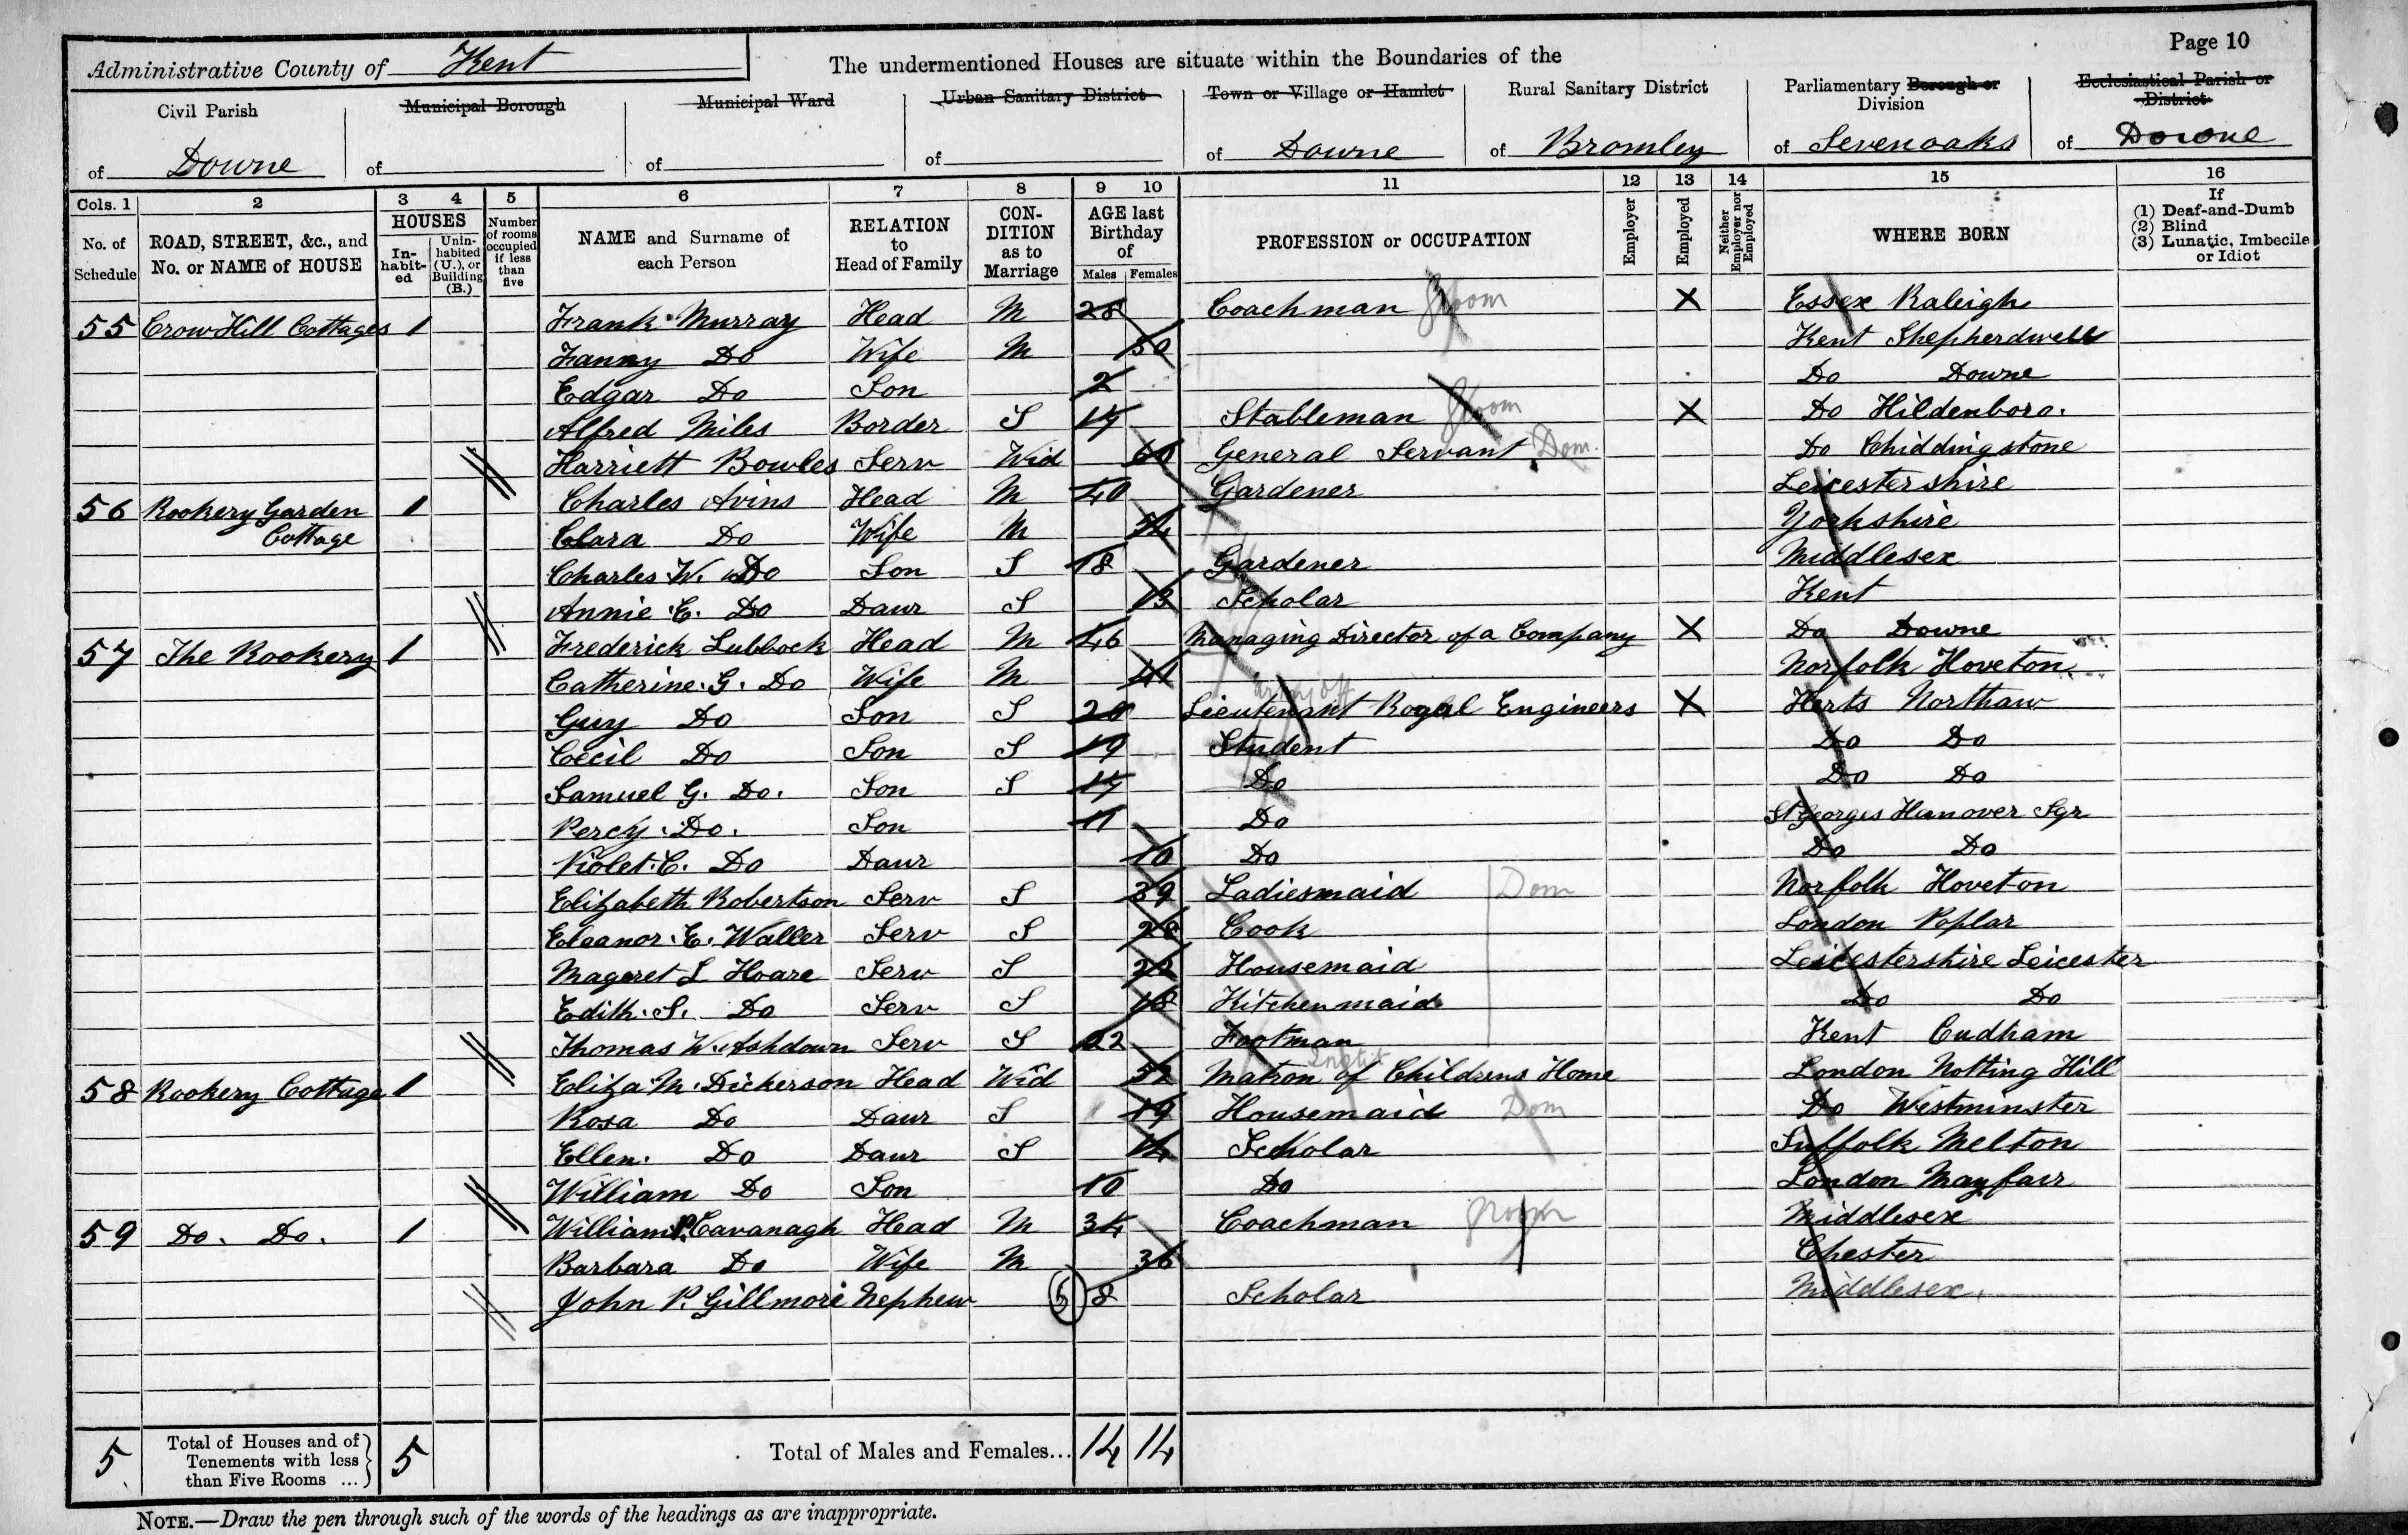 Page 10
Administrative County of Kent
The undermentioned Houses are situate within the Boundaries of the
Civil Parish of Downe
Municipal Borough of
Municipal Ward of
Urban Sanitary District of
Town or Village or Hamlet of Downe
Rural Sanitary District of Bromley
Parliamentary Borough or Division of Sevenoaks
Ecclesiastical Parish or District of Downe
Cols. 1 2 3 4 5 6 7 8 9 10 11 12 13 14 15 16
No. of Schedule
ROAD, STREET, &c., and No. or NAME of HOUSE
HOUSES
Inhabited
Uninhabited (U.), or Building (B.)
Number of rooms occupied if less than five
NAME and Surname of each Person
RELATION to Head of Family
CONDITION as to Marriage
AGE last Birthday of
Males Females
PROFESSION or OCCUPATION
Employer
Employed
Neither Employer nor Employed
WHERE BORN
If
(1) Deaf-and-Dumb
(2) Blind
(3) Lunatic, Imbecile or Idiot
55 Crow Hill Cottages 1 Frank Murray Head M 28 Coachman Groom X Essex Raleigh
Fanny Do Wife M 30 Kent Shepherdwell
Edgar Do Son 2 Do Downe
Alfred Miles Border S 17 Stableman Groom X Do Hildenboro.
Harriett Bowles Serv Wid General Servant Dom. Do Chiddingstone
56 Rookery Garden Cottage 1 Charles Avins Head M 40 Gardener Leicestershire
Clara Do Wife M Yorkshire
Charles W. Do Son S 18 Gardener Middlesex
Annie E. Do Daur S 13 Scholar Kent
57 The Rookery 1 Frederick Lubbock Head M 46 Managing Director of a Company X Do Downe
Catherine G. Do Wife M 41 Norfolk Hoveton
Guy Do Son S 20 Lieutenant Royal Engineers Army Off X Herts Northaw
Cecil Do Son S 19 Student Do Do
Samuel G. Do. Son S 17 Do Do Do
Percy Do. Son 11 Do St Georges Hanover Sqr
Violet C. Do Daur 10 Do Do Do
Elizabeth Robertson Serv S 39 Ladiesmaid Dom Norfolk Hoveton
Eleanor E. Waller Serv S 28 Cook London Poplar
Magaret L Hoare Serv S 22 Housemaid Leicestershire Leicester
Edith S. Do Serv S 18 Kitchenmaid Do Do
Thomas W. Ashdown Serv S 22 Footman Kent Cudham
58 Rookery Cottage 1 Eliza M. Dickerson Head Wid 52 Matron of Childrens Home Instit London Notting Hill
Rosa Do Daur S 19 Housemaid Dom Do Westminster
Ellen Do Daur S 14 Scholar Suffolk Melton
William Do Son 10 Do London Mayfair
59 Do. Do. 1 William P. Cavanagh Head M 34 Coachman Groom Middlesex
Barbara Do Wife M 36 Chester
John P. Gillmore Nephew (5) 8 Scholar Middlesex.
5 Total of Houses and of Tenements with less than Five Rooms ... 5 Total of Males and Females... 14 14
NOTE.—Draw the pen through such of the words of the headings as are inappropriate.